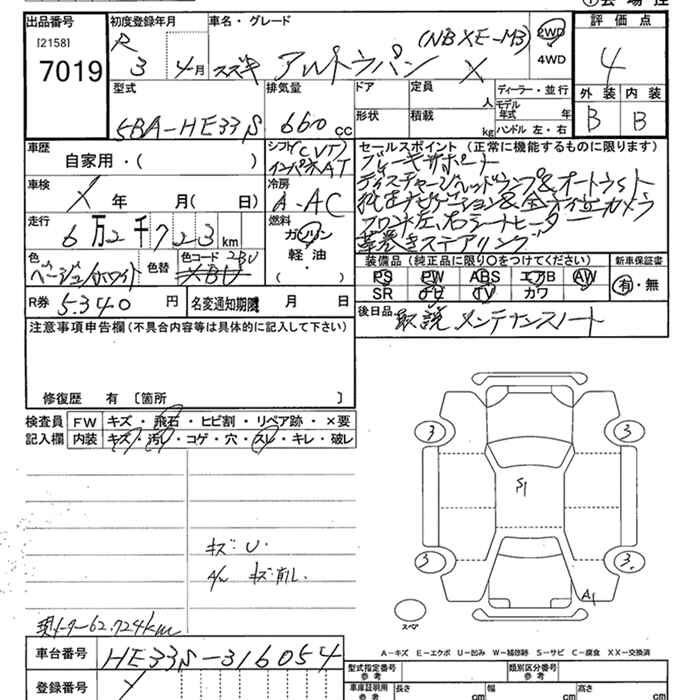 出品番号 初度登録年月 車名・グレード 評価点
[2158] R (NBXE-M3) 2WD
7019 3 4月 スズキ アルトラパン X 4WD 4
型式 排気量 ドア 定員 ディーラー・並行 外装 内装
人 モデル年式 年
5BA-HE33S 660cc 形状 積載 kg ハンドル 左・右 B B
車歴 シフト(CVT) セールスポイント (正常に機能するものに限ります)
自家用・( ) インパネAT ブレーキサポート
車検 冷房 ディスチャージヘッドランプ&オートライト
年 月( 日) A-AC ナビゲーション&全方位カメラ
走行 燃料 フロント左、右シートヒーター
6万2千723km ガソリン 革巻きステアリング
軽油・( )
色 色替 色コード 2BU 装備品 (純正品に限り○をつけてください) 新車保証書
ベージュ/ホワイト XBU PS PW ABS エアB AW 有・無
SR ナビ TV カワ
R券 5,340円 名変通知期限 月 日 後日品 取説 メンテナンスノート
注意事項申告欄(不具合内容等は具体的に記入して下さい)
修復歴 有 〔箇所 〕
検査員 FW キズ・飛石・ヒビ割・リペア跡・×要
記入欄 内装 キズ・汚レ・コゲ・穴・スレ・キレ・破レ
3 3
S1
キズ:U.
A/W キズ・削レ.
3 3.
A1
スペア
現メーター62,724km
A-キズ E-エクボ U-凹み W-補修跡 S-サビ C-腐食 XX-交換済
車台番号 HE33S-316054
型式指定番号 参考 類別区分番号 参考
登録番号 車庫証明用 参考 長さ cm 幅 cm 高さ cm